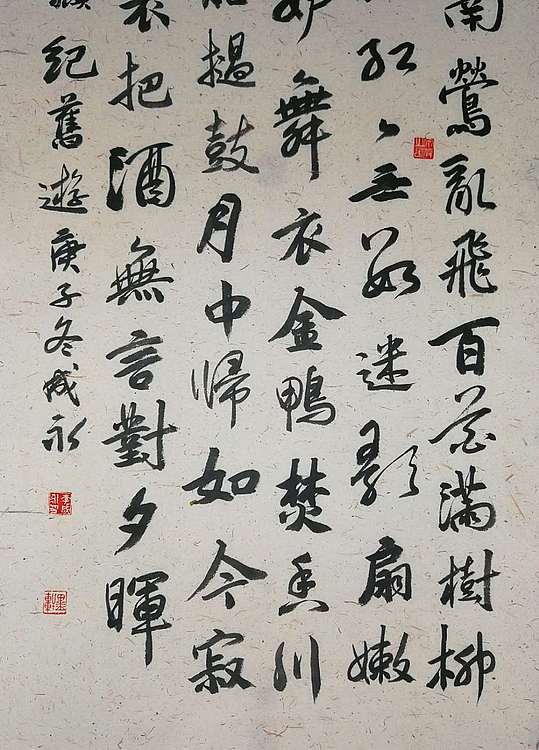 南鶯亂飛百花滿樹柳
紅無數迷歌扇嫩
妒舞衣金鴨焚香川
船撾鼓月中歸如今寂
裏把酒無言對夕暉
頫紀舊遊庚子冬成永